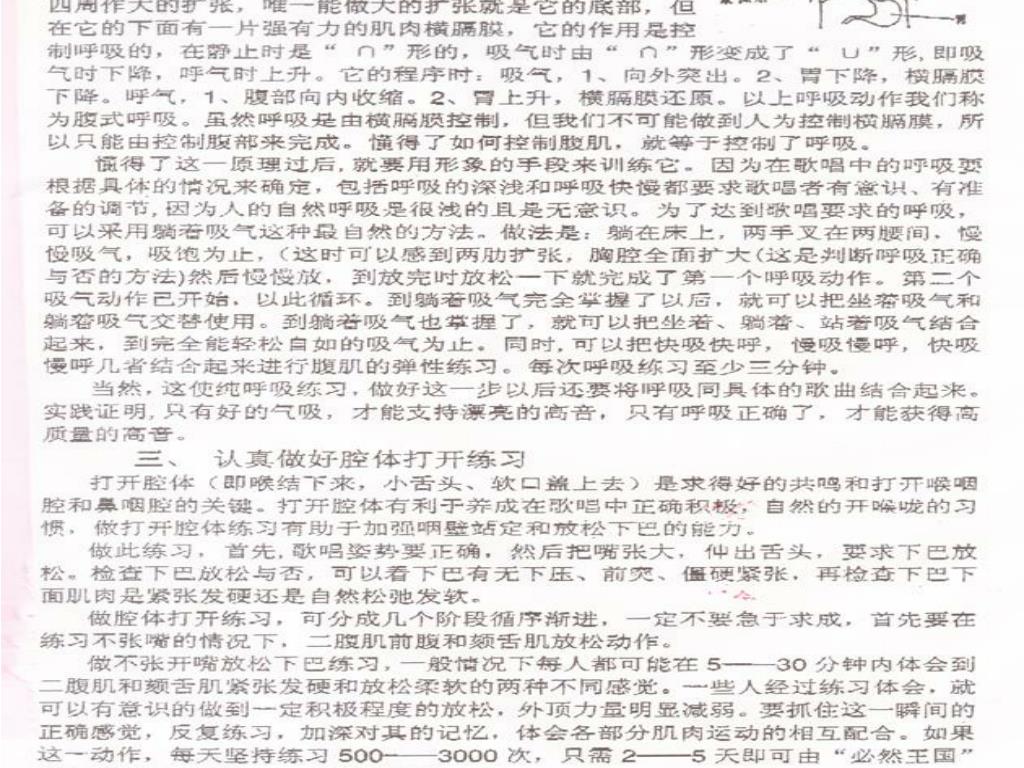 四周作大的扩张，唯一能做大的扩张就是它的底部，但
在它的下面有一片强有力的肌肉横膈膜，它的作用是控
制呼吸的，在静止时是“∩”形的，吸气时由“∩”形变成了“∪”形，即吸
气时下降，呼气时上升。它的程序时：吸气，1、向外突出。2、胃下降，横膈膜
下降。呼气，1、腹部向内收缩。2、胃上升，横膈膜还原。以上呼吸动作我们称
为腹式呼吸。虽然呼吸是由横膈膜控制，但我们不可能做到人为控制横膈膜，所
以只能由控制腹部来完成。懂得了如何控制腹肌，就等于控制了呼吸。
懂得了这一原理过后，就要用形象的手段来训练它。因为在歌唱中的呼吸要
根据具体的情况来确定，包括呼吸的深浅和呼吸快慢都要求歌唱者有意识、有准
备的调节，因为人的自然呼吸是很浅的且是无意识。为了达到歌唱要求的呼吸，
可以采用躺着吸气这种最自然的方法。做法是：躺在床上，两手叉在两腰间，慢
慢吸气，吸饱为止，（这时可以感到两肋扩张，胸腔全面扩大(这是判断呼吸正确
与否的方法)然后慢慢放，到放完时放松一下就完成了第一个呼吸动作。第二个
吸气动作已开始，以此循环。到躺着吸气完全掌握了以后，就可以把坐着吸气和
躺着吸气交替使用。到躺着吸气也掌握了，就可以把坐着、躺着、站着吸气结合
起来，到完全能轻松自如的吸气为止。同时，可以把快吸快呼，慢吸慢呼，快吸
慢呼几者结合起来进行腹肌的弹性练习。每次呼吸练习至少三分钟。
当然，这使纯呼吸练习，做好这一步以后还要将呼吸同具体的歌曲结合起来。
实践证明，只有好的气吸，才能支持漂亮的高音，只有呼吸正确了，才能获得高
质量的高音。
三、 认真做好腔体打开练习
打开腔体（即喉结下来，小舌头、软口盖上去）是求得好的共鸣和打开喉咽
腔和鼻咽腔的关键。打开腔体有利于养成在歌唱中正确积极，自然的开喉咙的习
惯，做打开腔体练习有助于加强咽壁站定和放松下巴的能力。
做此练习，首先，歌唱姿势要正确，然后把嘴张大，伸出舌头，要求下巴放
松。检查下巴放松与否，可以看下巴有无下压、前突、僵硬紧张，再检查下巴下
面肌肉是紧张发硬还是自然松弛发软。
做腔体打开练习，可分成几个阶段循序渐进，一定不要急于求成，首先要在
练习不张嘴的情况下，二腹肌前腹和颏舌肌放松动作。
做不张开嘴放松下巴练习，一般情况下每人都可能在5——30分钟内体会到
二腹肌和颏舌肌紧张发硬和放松柔软的两种不同感觉。一些人经过练习体会，就
可以有意识的做到一定积极程度的放松，外顶力量明显减弱。要抓住这一瞬间的
正确感觉，反复练习，加深对其的记忆，体会各部分肌肉运动的相互配合。如果
这一动作，每天坚持练习500——3000次，只需2——5天即可由“必然王国”